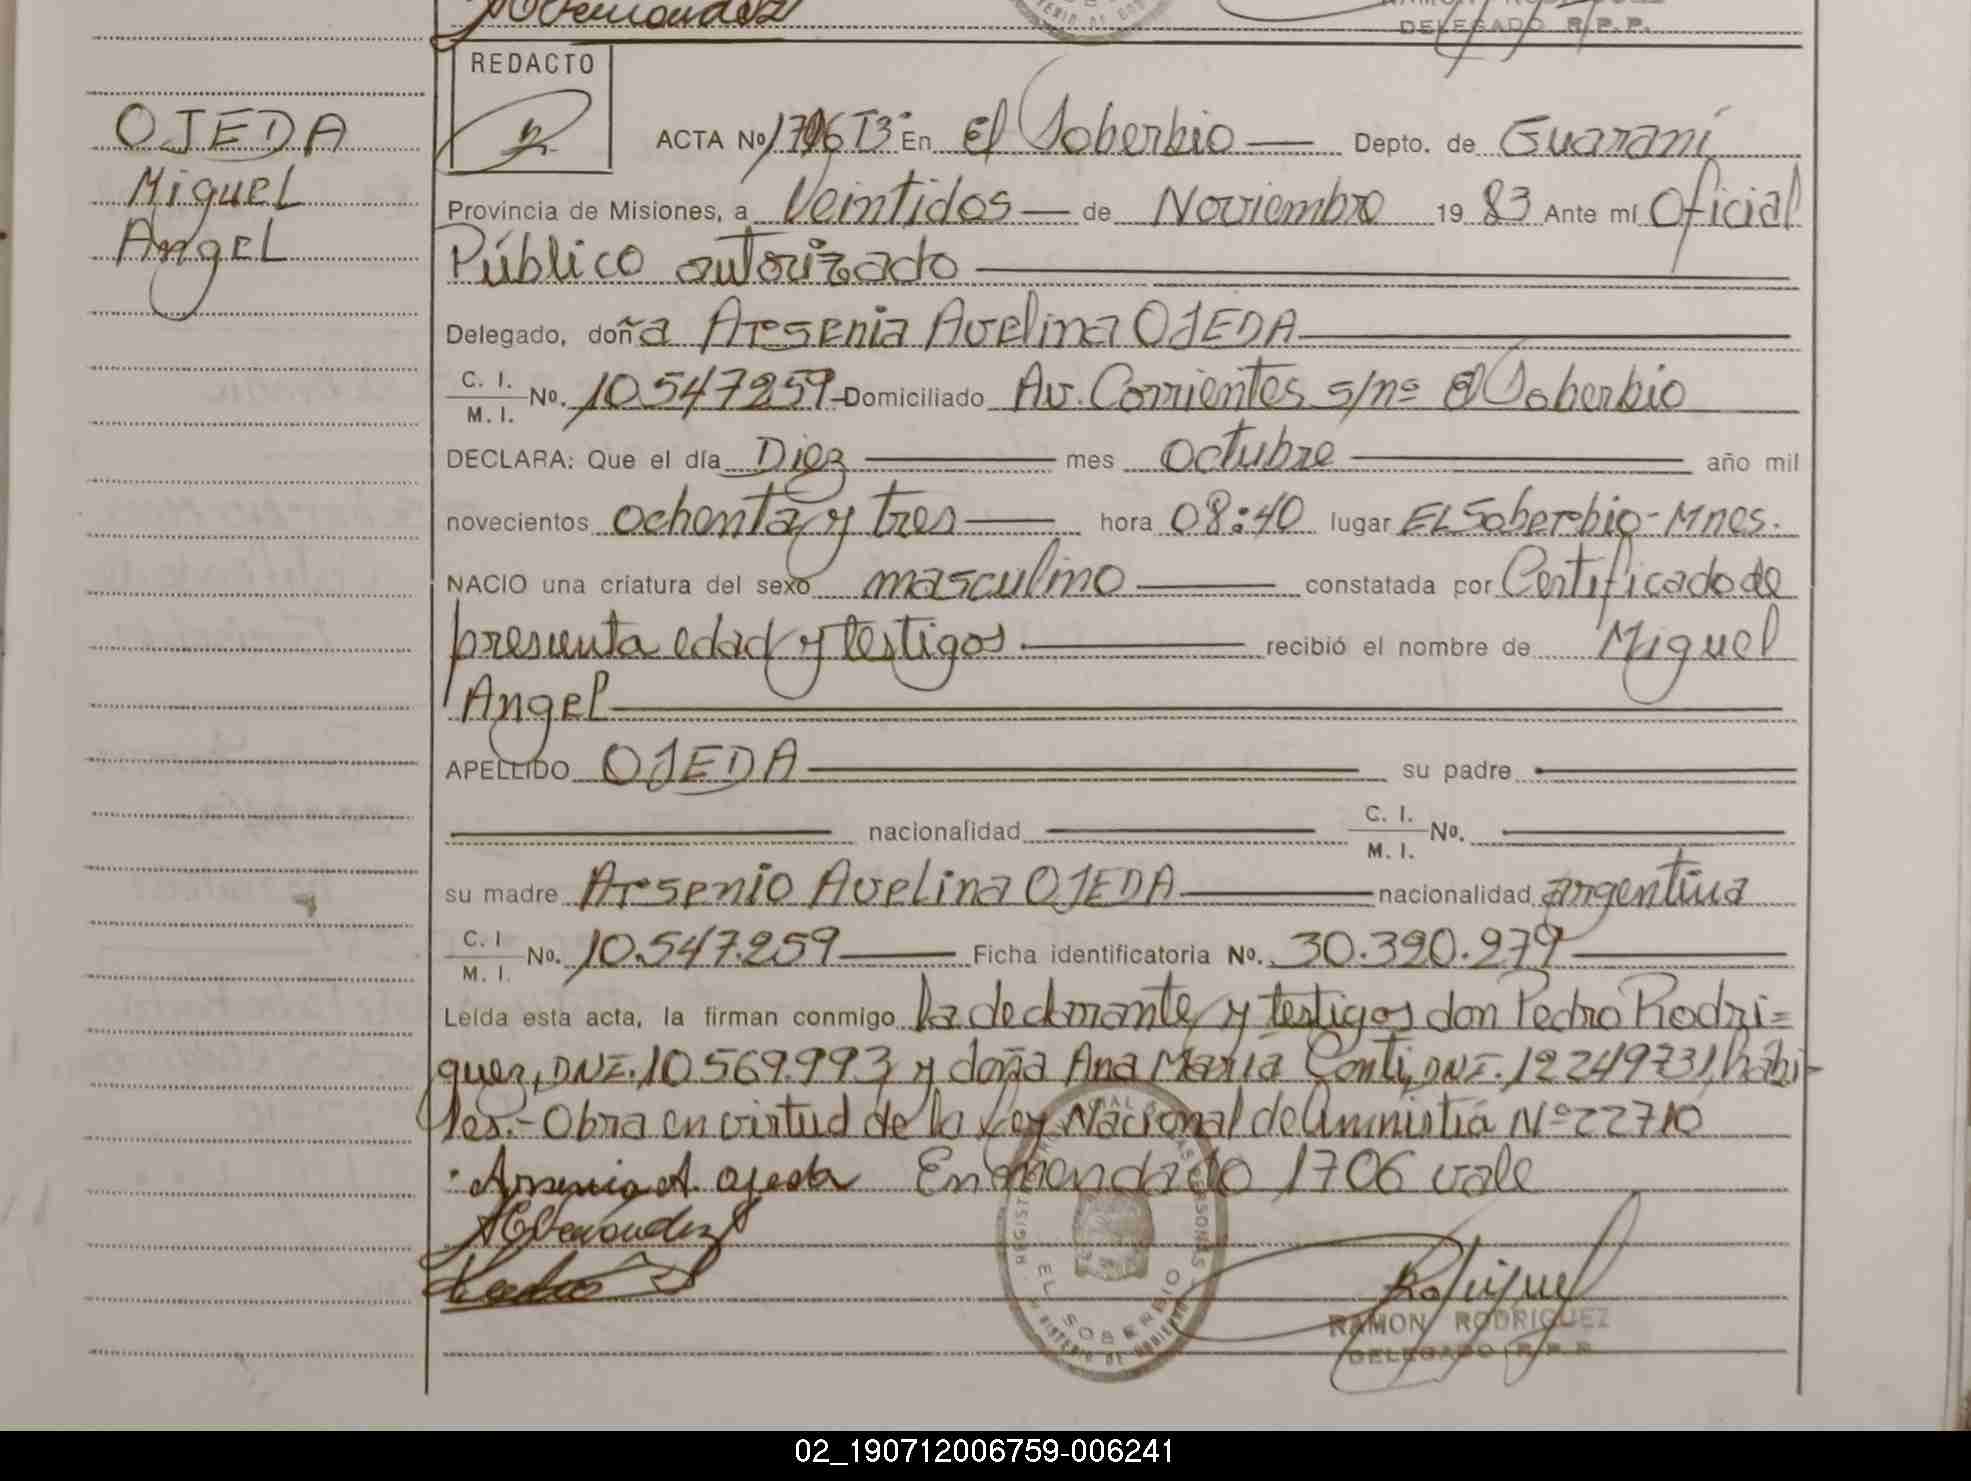 DELEGADO R.P.P.
REDACTO
OJEDA
Miguel
Angel
ACTA No 1706 T3º En El Soberbio Depto. de Guaraní
Provincia de Misiones, a Veintidos de Noviembre 19 83 Ante mí Oficial
Público autorizado
Delegado, doña Arsenia Avelina OJEDA
C. I. M. I. No. 10.547.259 Domiciliado Av. Corrientes s/nº El Soberbio
DECLARA: Que el día Diez mes octubre año mil
novecientos ochenta y tres hora 08:40 lugar EL Soberbio - Mnes.
NACIO una criatura del sexo masculino constatada por Certificado de
presunta edad y testigos recibió el nombre de Miguel
Angel
APELLIDO OJEDA su padre
nacionalidad C. I. M. I. No.
su madre Arsenio Avelina OJEDA nacionalidad argentina
C. I M. I. No. 10.547.259 Ficha identificatoria No. 30.390.279
Leída esta acta, la firman conmigo la declarante y testigos don Pedro Rodri=
guez, DNI. 10.569.993 y doña Ana María Conti, DNI. 12249731, hábi-
les.- Obra en virtud de la Ley Nacional de Amnistía Nº 22710
Arsenia A. ojeda Enmendado 1706 vale
EL SOBERBIO
RAMON RODRIGUEZ
DELEGADO R.P.P.
02_190712006759-006241